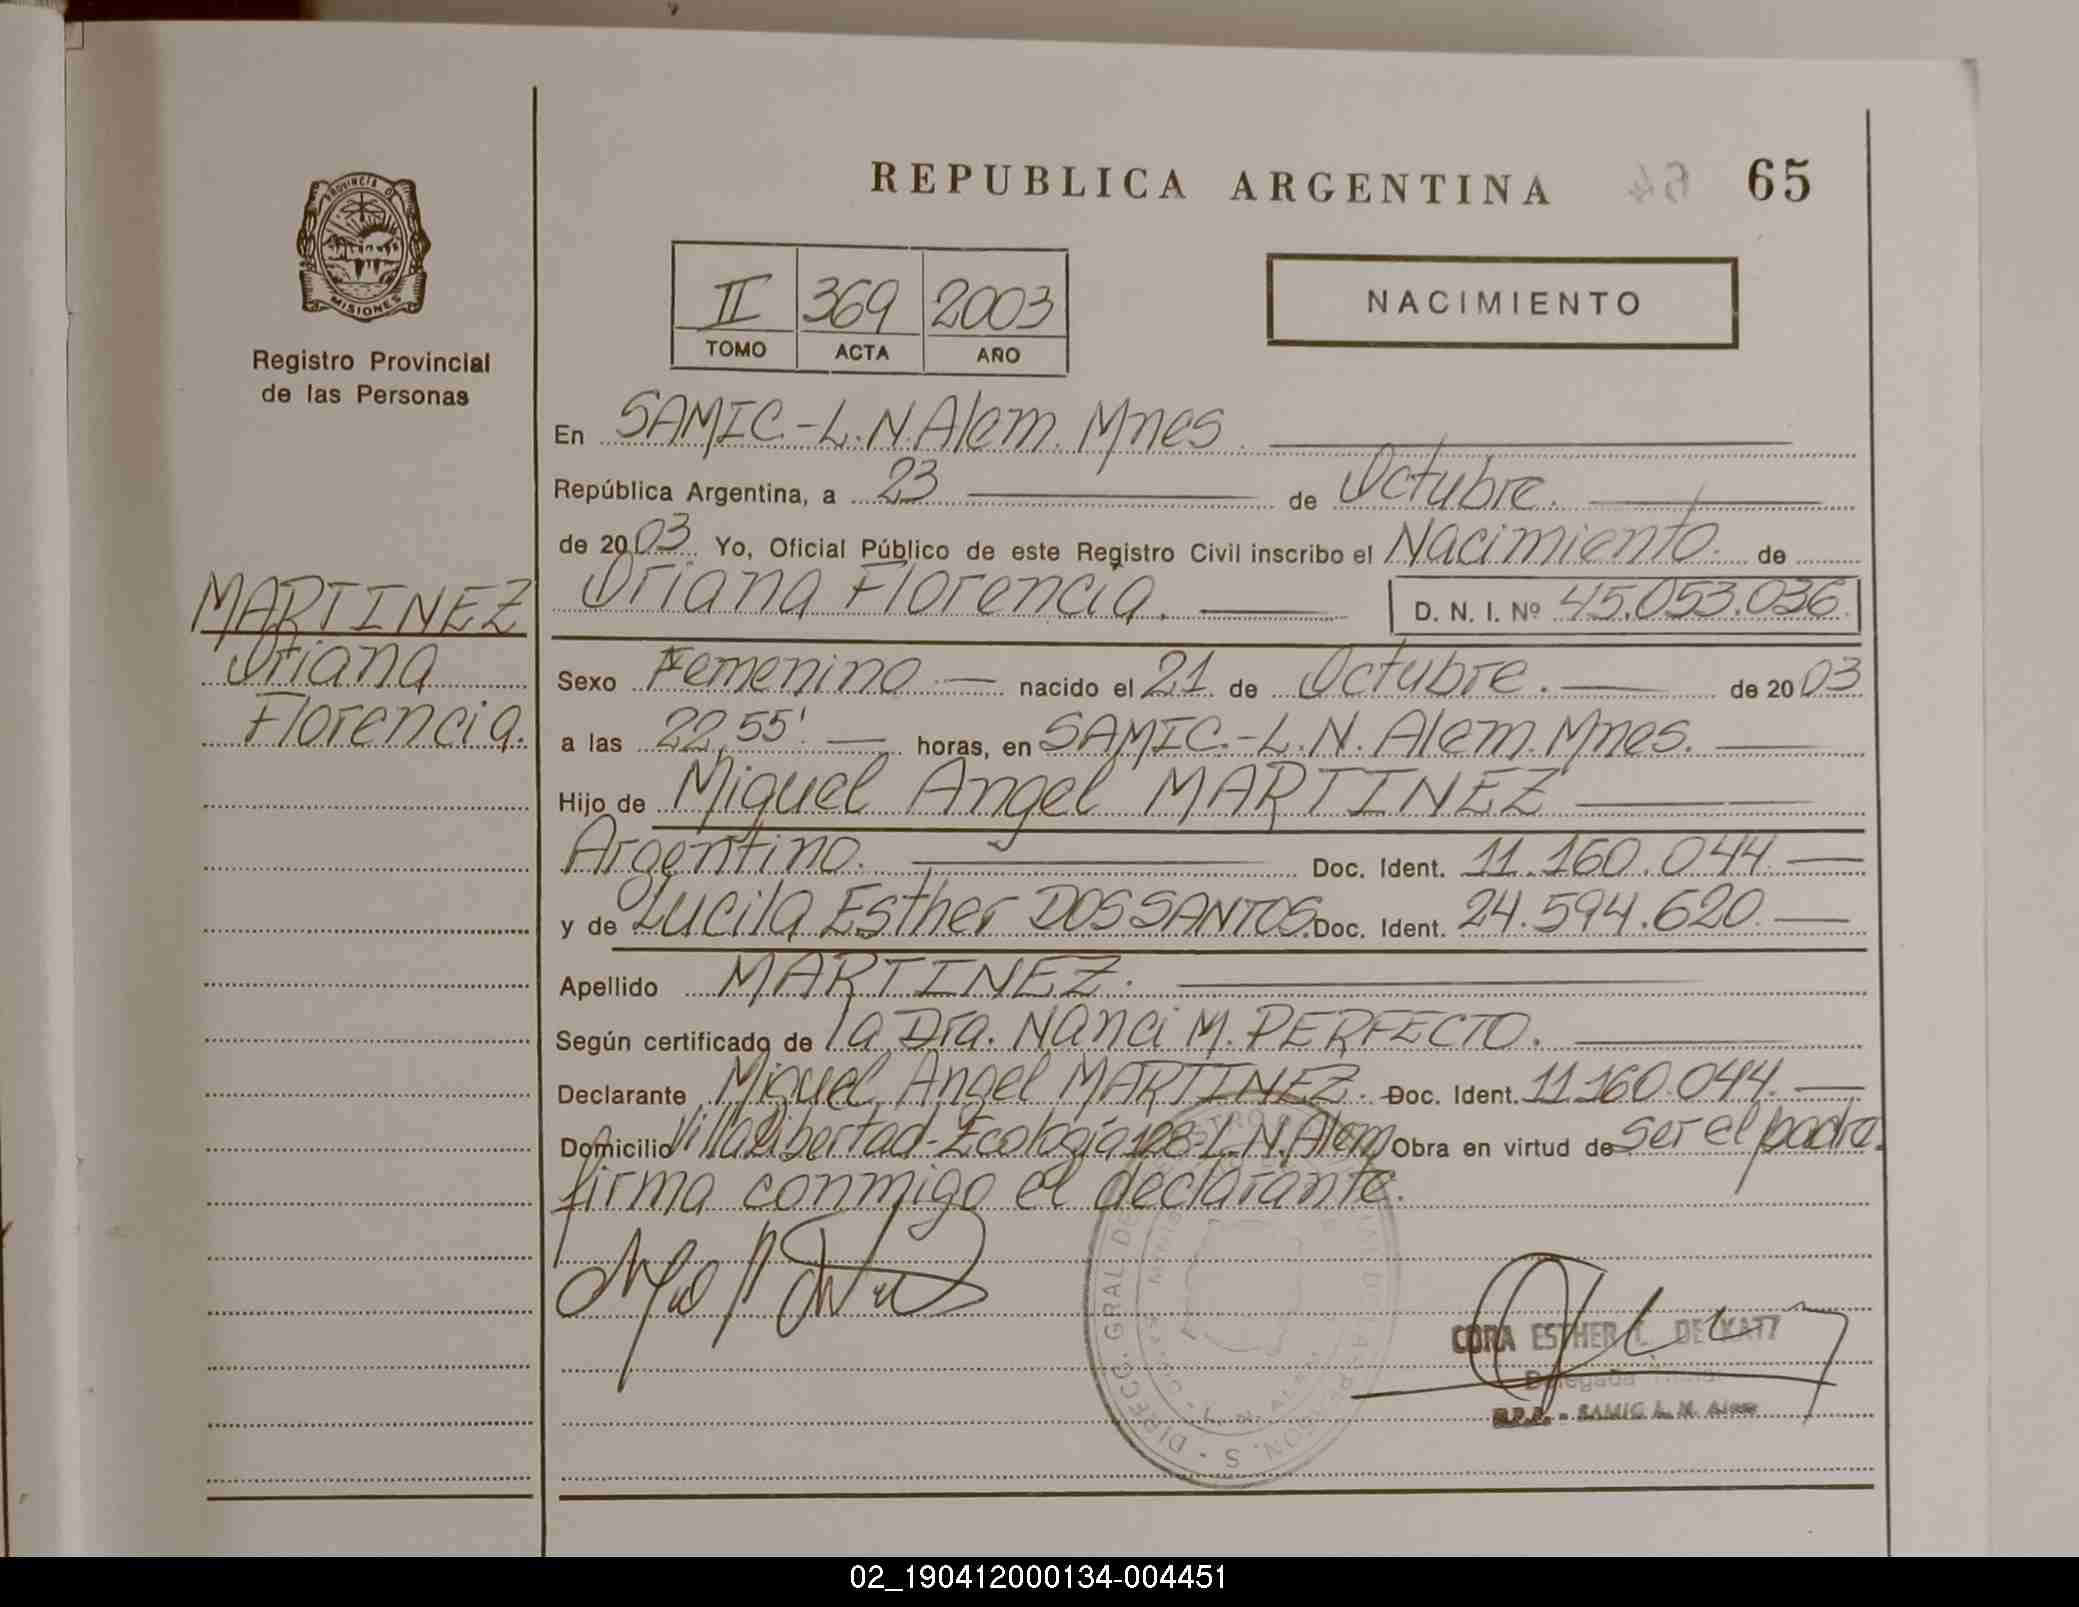 REPUBLICA ARGENTINA 64 65
PROVINCIA DE
MISIONES
Registro Provincial
de las Personas
II 369 2003
TOMO ACTA AÑO
NACIMIENTO
En SAMIC.-L.N.Alem. Mnes.
República Argentina, a 23 de Octubre.
de 2003. Yo, Oficial Público de este Registro Civil inscribo el Nacimiento. de
Oriana Florencia. D. N. I. Nº 45.053.036.
MARTINEZ
Oriana
Florencia.
Sexo Femenino nacido el 21 de Octubre. de 2003
a las 22,55'. horas, en SAMIC.-L.N. Alem. Mnes.
Hijo de Miguel Angel MARTINEZ
Argentino. Doc. Ident. 11.160.044.
y de Lucila Esther DOS SANTOS. Doc. Ident. 24.594.620.
Apellido MARTINEZ.
Según certificado de la Dra. Nanci M. PERFECTO.
Declarante Miguel Angel MARTINEZ. Doc. Ident. 11.160.044.
Domicilio Villa Libertad-Ecología 128-L.N.Alem Obra en virtud de ser el padre.
firma conmigo el declarante.
CORA ESTHER DE KATZ
Delegada
R.P.P. - SAMIC L. N. Alem
DIRECC. GRAL DE
L. N. ALEM
02_190412000134-004451